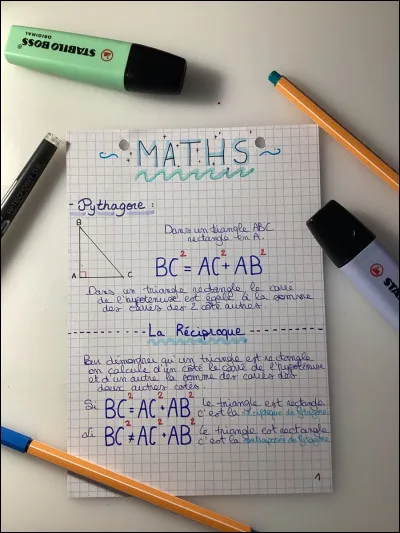 STABILO BOSS
ORIGINAL
MATHS
- Pythagore :
B
A
C
Dans un triangle ABC
rectangle en A.
BC² = AC² + AB²
Dans un triangle rectangle le carré
de l'hypoténuse est égale à la somme
des carrés des 2 côté autres.
La Réciproque
Pour démontrer qu'un triangle est rectangle
on calcule d'un côté le carré de l'hypoténuse
et d'un autre la somme des carrés des
deux autres cotés.
Si BC² = AC² + AB² le triangle est rectangle
c'est la réciproque de Pythagore
Si BC² ≠ AC² + AB² le triangle est rectangle
c'est la
STA
1